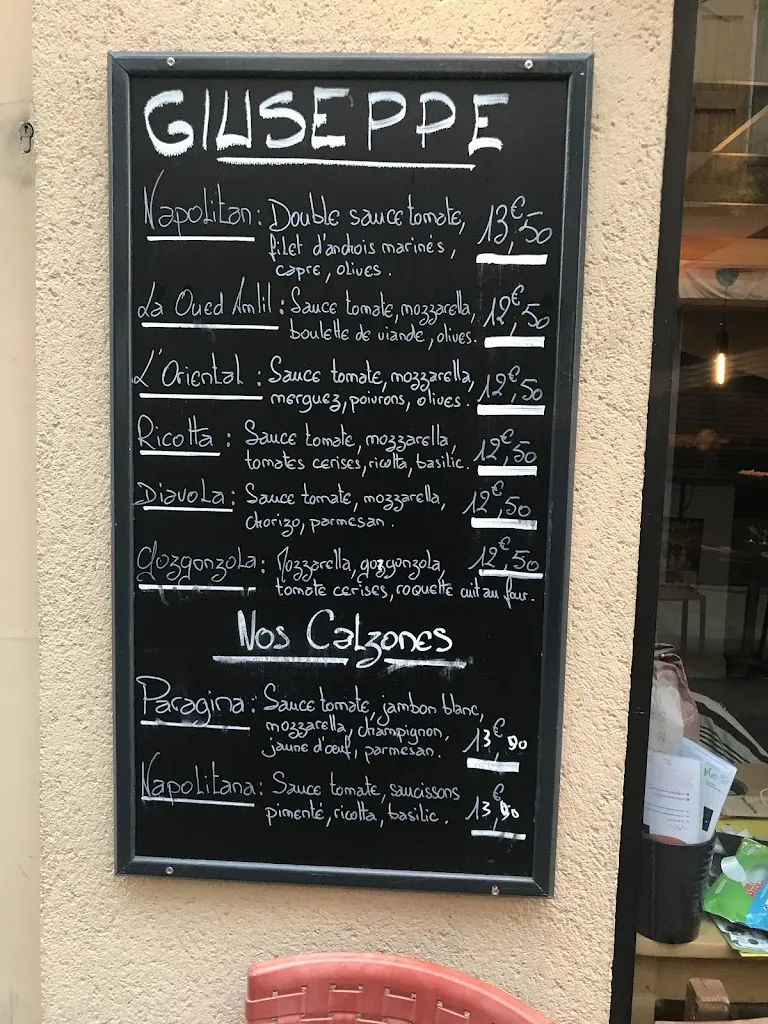 GIUSEPPE
Napolitan : Double sauce tomate, 13€,50
filet d'anchois marinés,
capre, olives.
La Oued Amlil : Sauce tomate, mozzarella, 12€,50
boulette de viande, olives.
L'Oriental : Sauce tomate, mozzarella, 12€,50
merguez, poivrons, olives.
Ricotta : Sauce tomate, mozzarella, 12€,50
tomates cerises, ricotta, basilic.
Diavola : Sauce tomate, mozzarella, 12€,50
chorizo, parmesan.
Gozgonzola : Mozzarella, gozgonzola, 12€,50
tomate cerises, roquette cuit au four.
Nos Calzones
Paragina : Sauce tomate, jambon blanc,
mozzarella, champignon, 13€,90
jaune d'œuf, parmesan.
Napolitana : Sauce tomate, saucissons 13€,90
pimenté, ricotta, basilic.